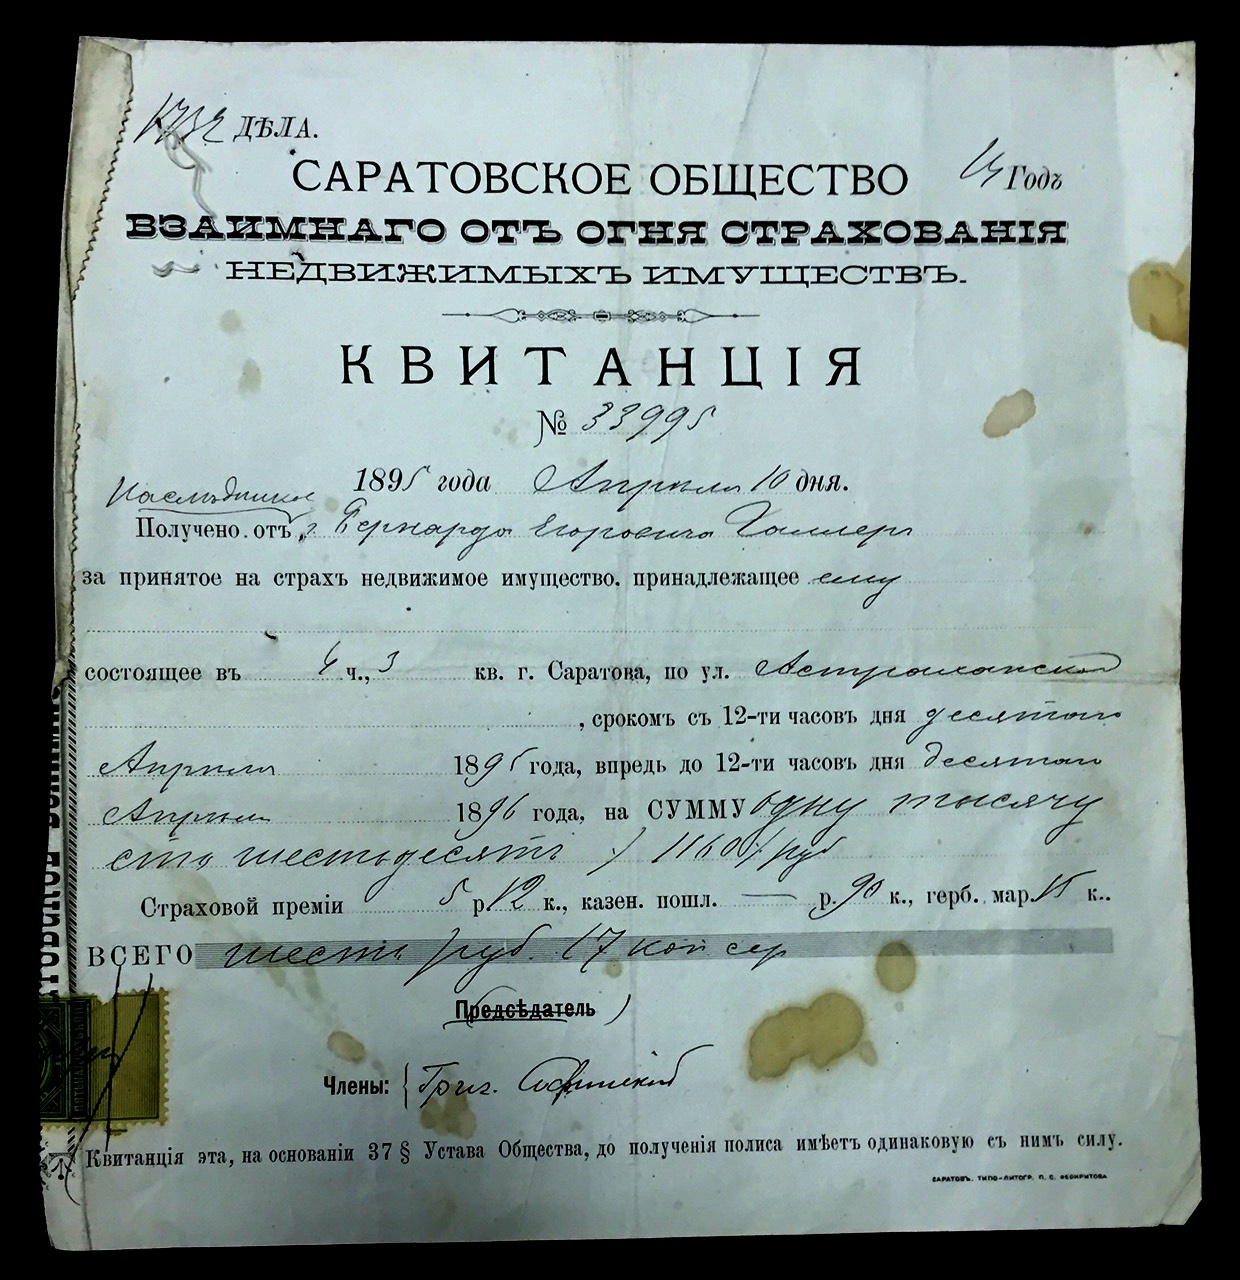 1732 ДѢЛА.
САРАТОВСКОЕ ОБЩЕСТВО
Годъ
ВЗАИМНАГО ОТЪ ОГНЯ СТРАХОВАНІЯ
НЕДВИЖИМЫХЪ ИМУЩЕСТВЪ.
КВИТАНЦІЯ
№ 33995
1895 года Апреля 10 дня.
Получено отъ г. Бернарда Егоровича Галлеръ
за принятое на страхъ недвижимое имущество, принадлежащее ему
состоящее въ 4 ч., 3 кв. г. Саратова, по ул. Астраханской
, срокомъ съ 12-ти часовъ дня десятаго
Апреля 1895 года, впредь до 12-ти часовъ дня десятаго
Апреля 1896 года, на СУММУ одну тысячу
сто шестьдесятъ / 1160 / руб
Страховой преміи 5 р. 12 к., казен. пошл. — р. 90 к., герб. мар. 15 к..
ВСЕГО шесть руб. 17 коп сер
Предсѣдатель
Члены: Григ.
Квитанція эта, на основаніи 37 § Устава Общества, до полученія полиса имѣетъ одинаковую съ нимъ силу.
САРАТОВЪ. ТИПО-ЛИТОГР. П. С. ФЕОКРИТОВА